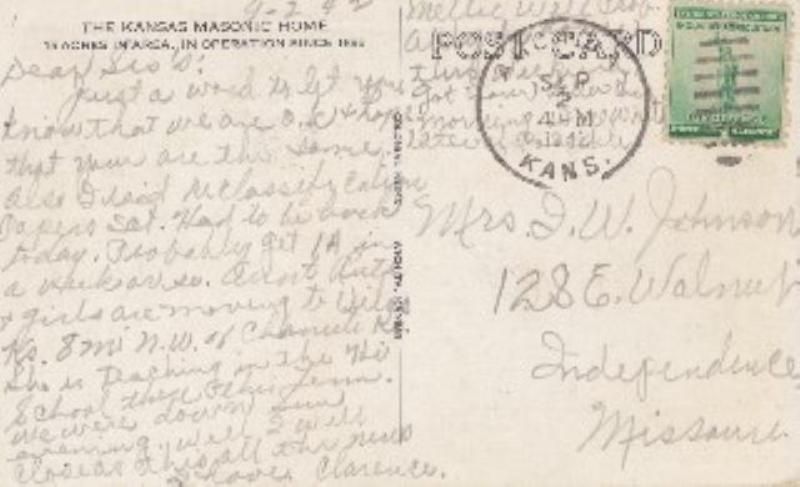 9-2-42
THE KANSAS MASONIC HOME
15 ACRES IN AREA, IN OPERATION SINCE 1896
Dear Sis's:
Just a word to let you
know that we are O.K. & hope
that your are the same.
Also I said reclassification
papers Sat. Had to be back
today. Probably get 1A in
a week or so. Aunt
& girls are moving to
Ks. 8 mi N.W. of Chanute Ks.
She is teaching in the Hi
School there this term.
We were down Sun
evening. Well I will
close as this all the news
Love Clarence.
POST CARD
SEP
2
4 PM
1942
KANS.
Mrs. I. W. Johnson
128 E. Walnut
Independence
Missouri.